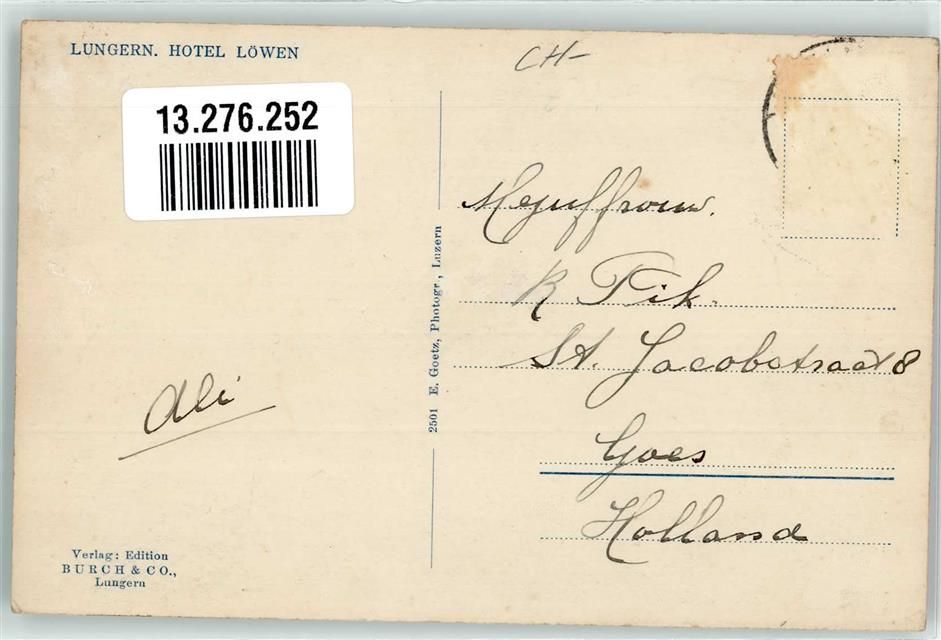 LUNGERN. HOTEL LÖWEN
CH-
13.276.252
Mejuffrouw.
K Pik.
St. Jacobstraat 8
Goes
Holland
Ali
2501 E. Goetz, Photogr., Luzern
Verlag: Edition
BURCH & CO.,
Lungern